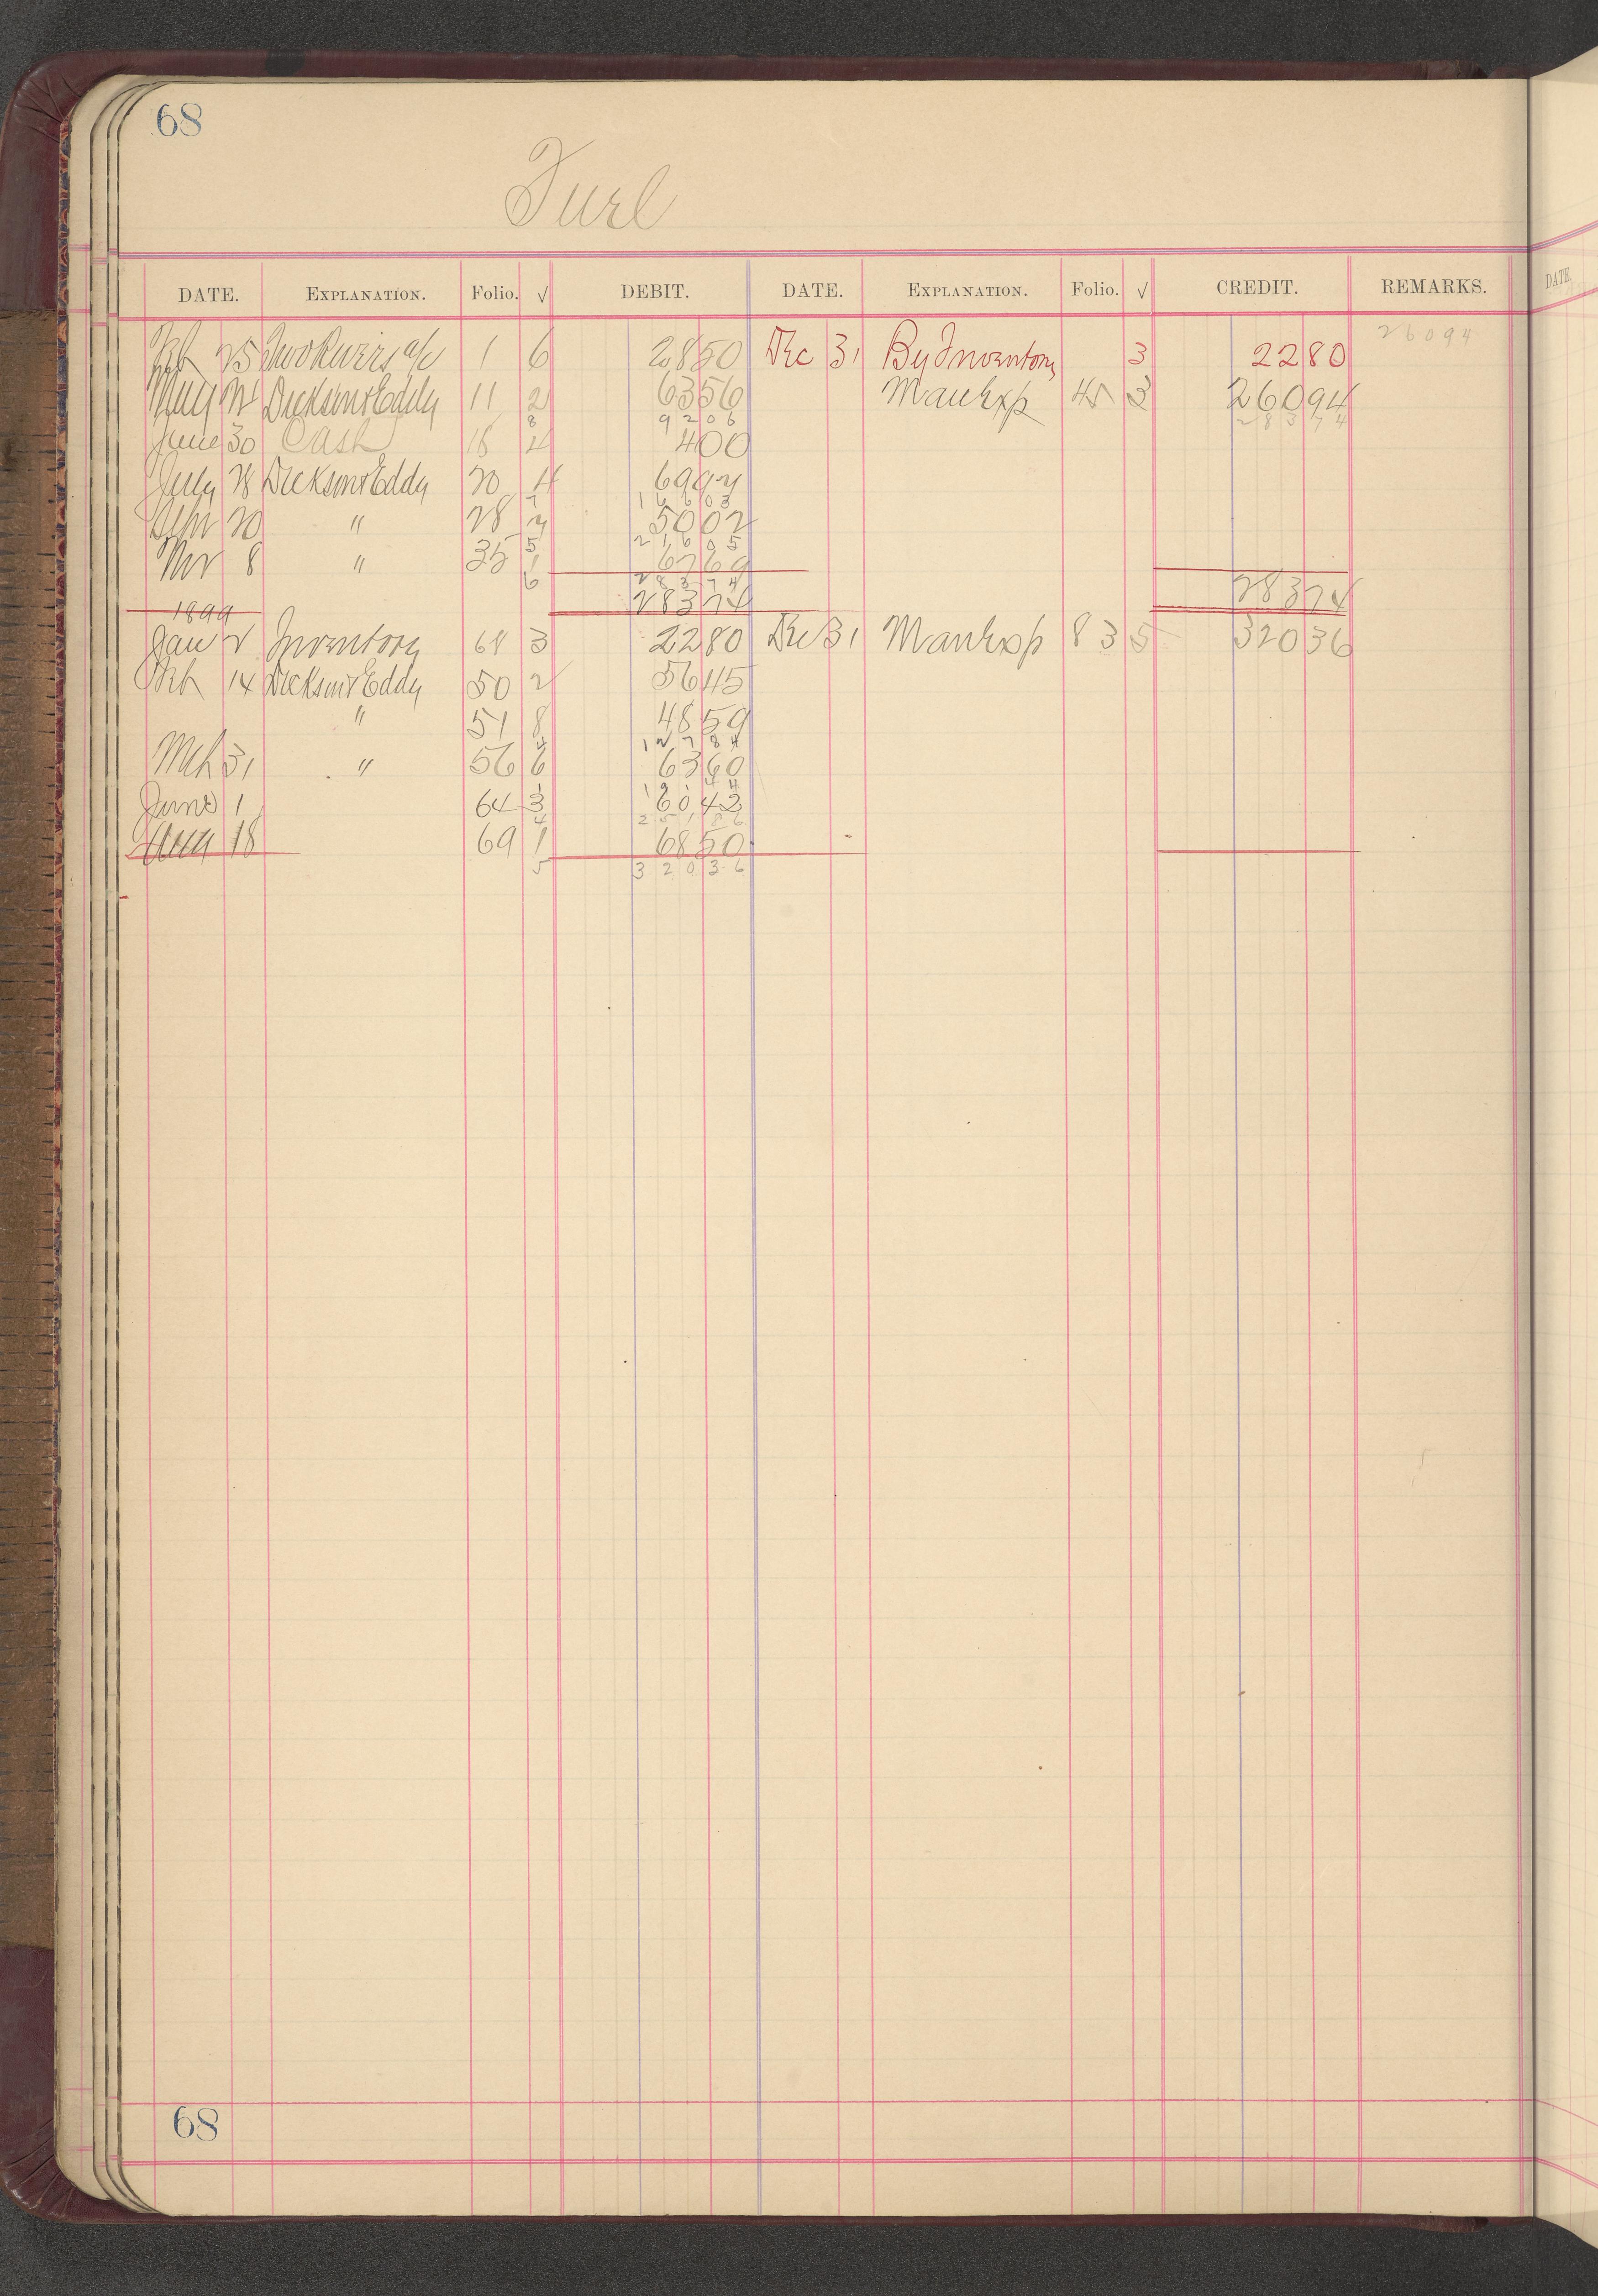 68
Fuel
DATE. EXPLANATION. Folio. √ DEBIT. DATE. EXPLANATION. Folio. √ CREDIT. REMARKS.
26094
Feb 25 Two Rivers a/c 1 6 2850 Dec 31 By Inventory 3 2280
May 12 Dickson & Eddy 11 2 6356 Man Exp 45 3 26094
8 9206 28374
June 30 Cash 18 4 400
July 28 Dickson & Eddy 20 4 6997
7 16603
20 " 28 2 5002
5 21605
Nov 8 " 35 1 6769
6 28374
28374 28374
1899
Jan 2 Inventory 68 3 2280 Dec 31 Man Exp 83 5 32036
Feb 14 Dickson & Eddy 50 2 5645
" 51 8 4859
4 12784
Mch 31 " 56 6 6360
June 1 64 3 6042
4 25186
Aug 18 69 1 6850
5 32036
68
DATE.